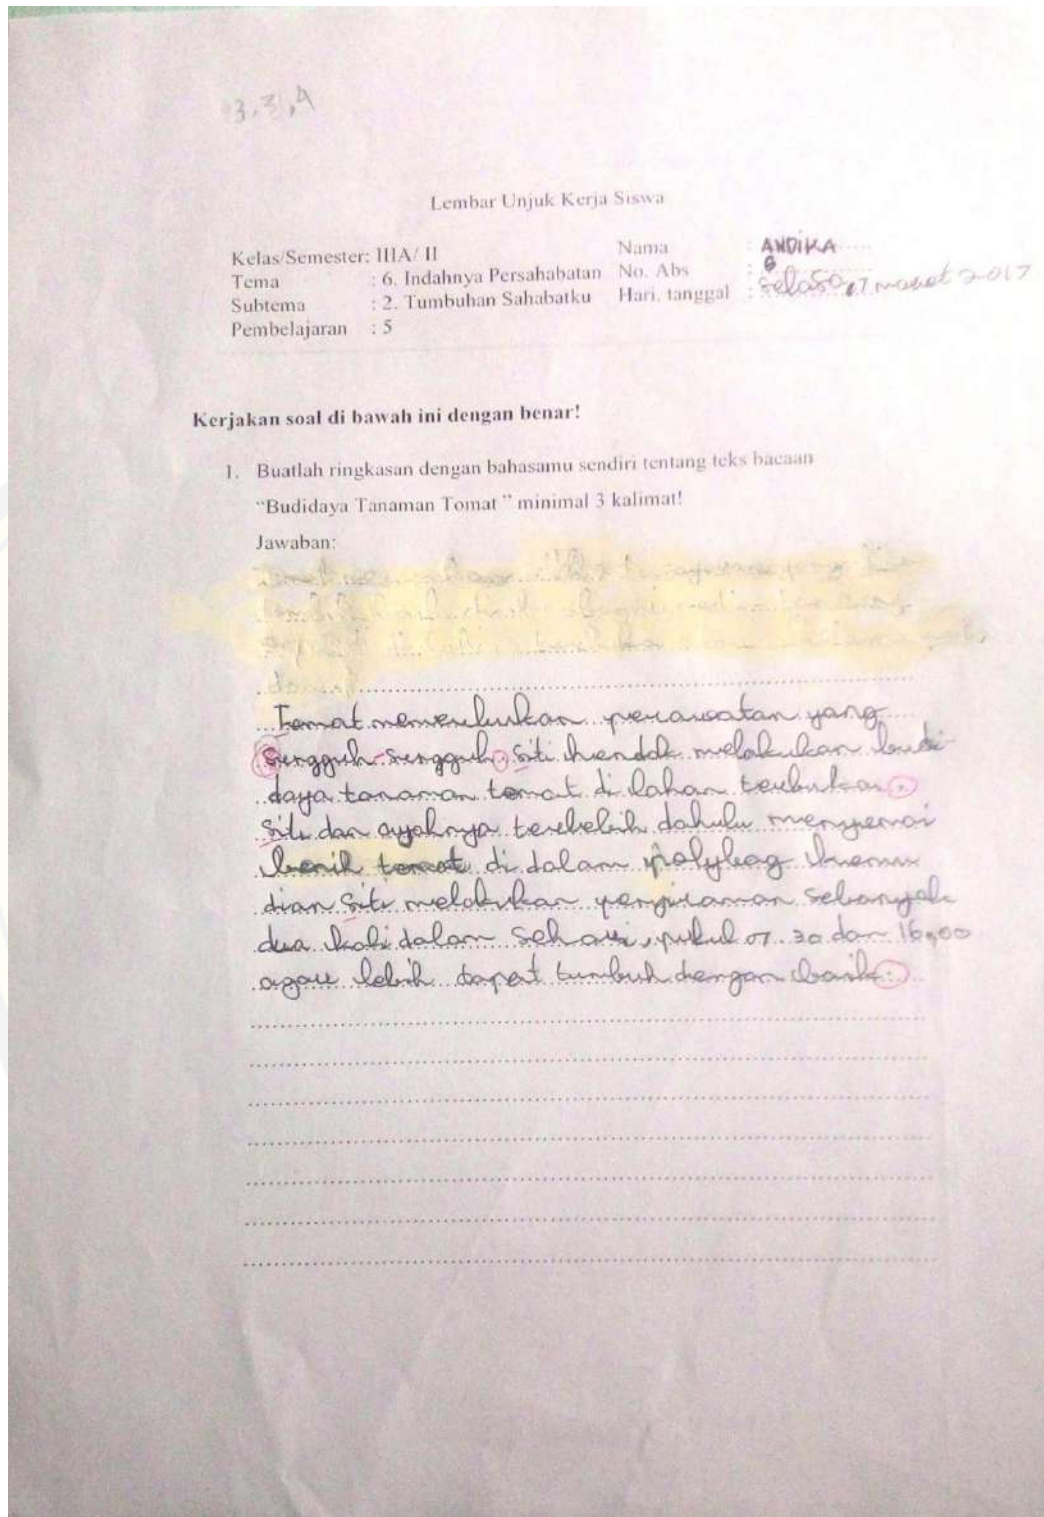 3,3,4
Lembar Unjuk Kerja Siswa
Kelas/Semester: IIIA/ II Nama : ANDIKA
Tema : 6. Indahnya Persahabatan No. Abs :
Subtema : 2. Tumbuhan Sahabatku Hari, tanggal : Selasa, 7 maret 2017
Pembelajaran : 5
Kerjakan soal di bawah ini dengan benar!
1. Buatlah ringkasan dengan bahasamu sendiri tentang teks bacaan
“Budidaya Tanaman Tomat ” minimal 3 kalimat!
Jawaban:
Tomat memerlukan perawatan yang
sungguh-sungguh. Siti hendak melakukan budi
daya tanaman tomat di lahan terbuka.
Siti dan ayahnya terlebih dahulu menyemai
benih tomat di dalam polybag kemu
dian Siti melakukan penyiraman sebanyak
dua kali dalam sehari, pukul 07.30 dan 16.00
agar lebih dapat tumbuh dengan baik.